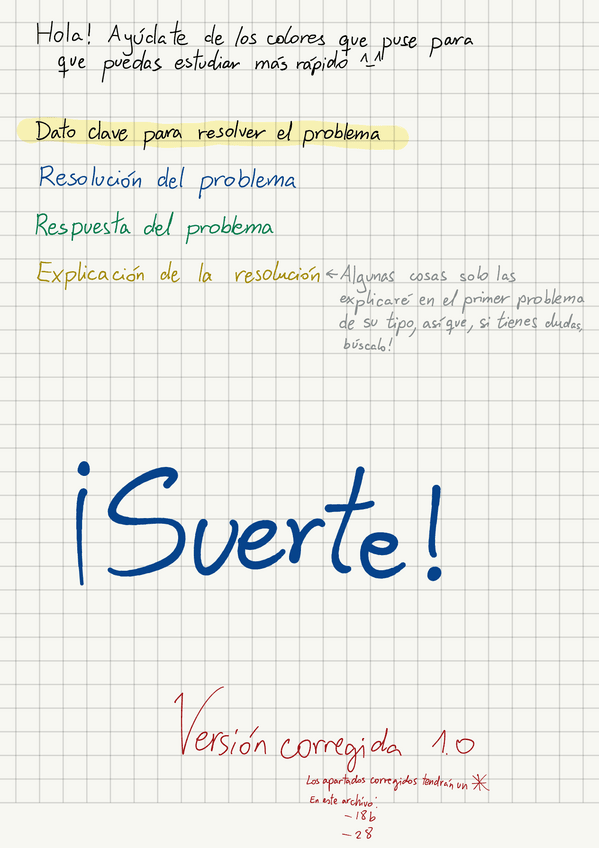 Hola! Ayúdate de los colores que puse para
que puedas estudiar más rápido ^_^
Dato clave para resolver el problema
Resolución del problema
Respuesta del problema
Explicación de la resolución ← Algunas cosas solo las
explicaré en el primer problema
de su tipo, así que, si tienes dudas,
búscalo!
¡Suerte!
Versión corregida 1.0
Los apartados corregidos tendrán un *
En este archivo:
- 18b
- 28